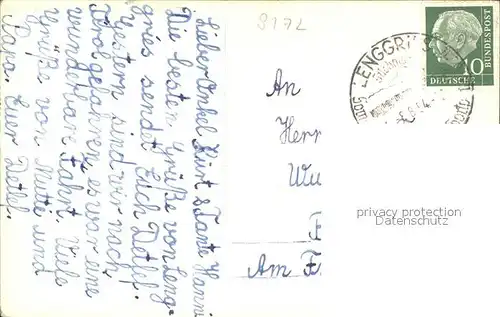 Lieber Onkel Kurt & Tante Hanni
Die besten Grüße von Leng-
gries sendet Euch Detlef.
Gestern sind wir nach
Tirol gefahren, es war eine
wunderbare Fahrt. Viele
Grüße von Mutti und
Papa. Euer Detlef.
3172
An
Herr
Wu
Am F
LENGGRI
10
DEUTSCHE
BUNDESPOST
privacy protection
Datenschutz